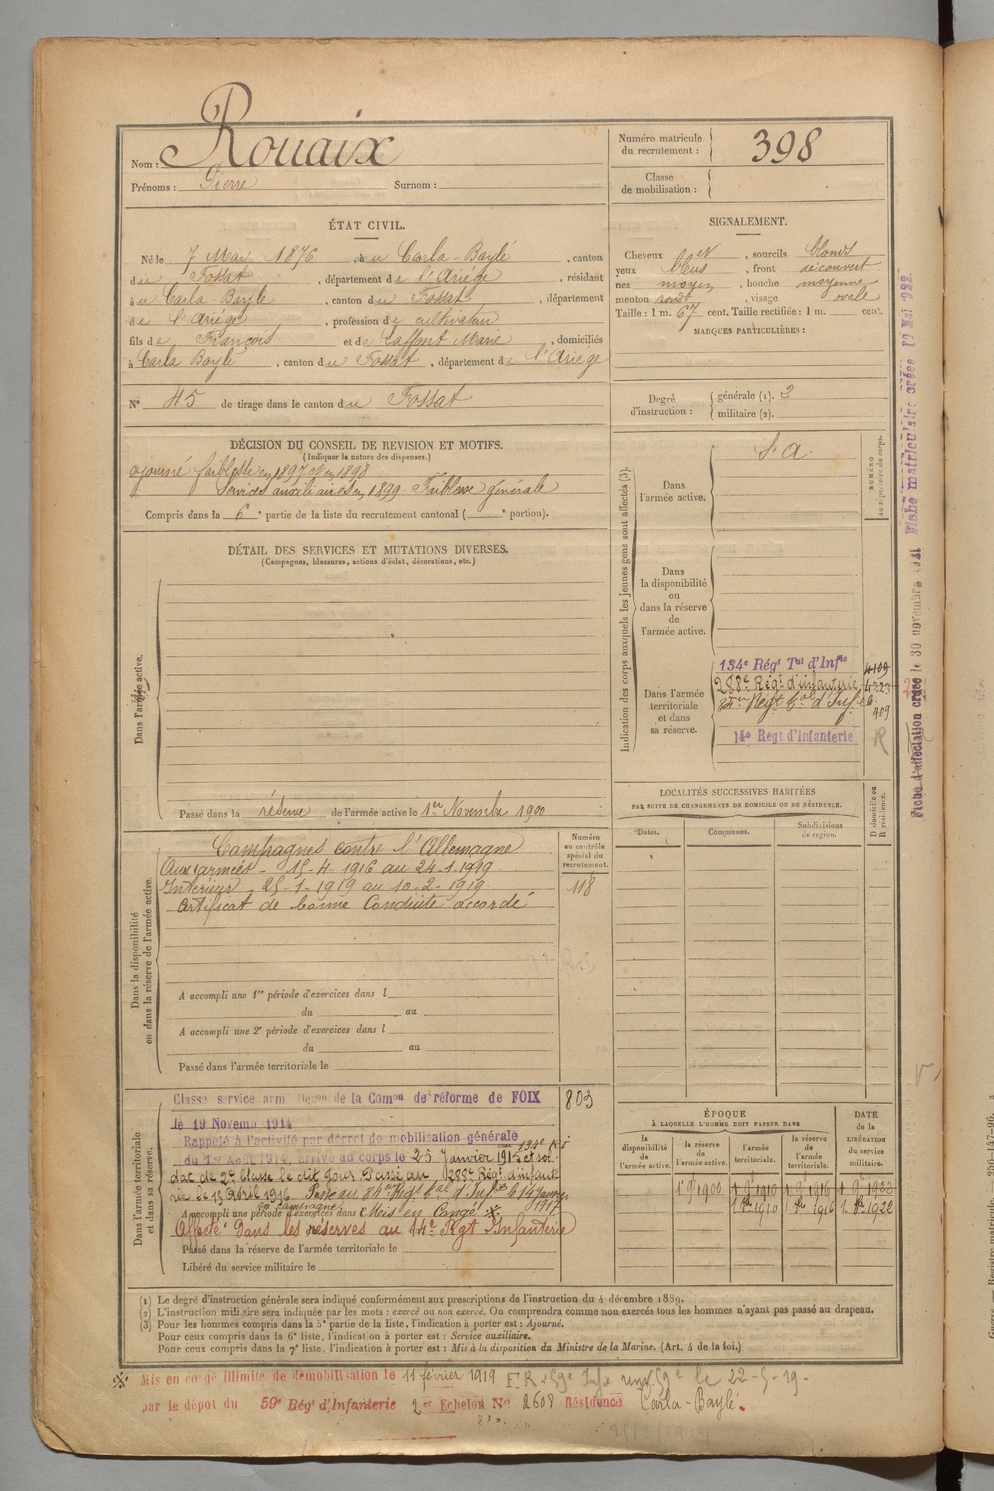 Nom : Rouaix
Prénoms : Pierre Surnom :
Numéro matricule du recrutement : 398
Classe de mobilisation :
ÉTAT CIVIL.
Né le 7 Mai 1876, à u Carla-Bayle, canton
du Fossat, département de l'Ariége, résidant
à u Carla-Bayle, canton du Fossat, département
de l'Ariége, profession de cultivateur
fils de François et de Laffont Marie, domiciliés
à Carla Bayle, canton du Fossat, département de l'Ariége
N° 45 de tirage dans le canton du Fossat
SIGNALEMENT.
Cheveux , sourcils blonds
yeux bleus, front découvert
nez moyen, bouche moyenne
menton rond, visage ovale
Taille : 1 m. 67 cent. Taille rectifiée : 1 m. cent.
MARQUES PARTICULIÈRES :
Degré d'instruction : générale (1). 3
militaire (2).
DÉCISION DU CONSEIL DE REVISION ET MOTIFS.
(Indiquer la nature des dispenses.)
ajourné faiblesse en 1897 et en 1898
Services auxiliaires en 1899 Faiblesse générale
Compris dans la 6e partie de la liste du recrutement cantonal ( e portion).
DÉTAIL DES SERVICES ET MUTATIONS DIVERSES.
(Campagnes, blessures, actions d'éclat, décorations, etc.)
Dans l'armée active.
Passé dans la réserve de l'armée active le 1er Novembre 1900
Indication des corps auxquels les jeunes gens sont affectés (3).
NUMÉRO au répertoire du corps.
Dans l'armée active.
S. A.
Dans la disponibilité ou dans la réserve de l'armée active.
Dans l'armée territoriale et dans sa réserve.
134e Régt Tal d'Infie 4109
288e Régt d'infanterie 4323
84me Régt tal d'Inf 409
14e Régt d'Infanterie R
LOCALITÉS SUCCESSIVES HABITÉES
PAR SUITE DE CHANGEMENTS DE DOMICILE OU DE RÉSIDENCE.
Dates. Communes. Subdivisions de région. D domicile ou R résidence.
Dans la disponibilité ou dans la réserve de l'armée active.
Numéro au contrôle spécial du recrutement.
118
Campagnes contre l'Allemagne
Aux armées - 15-4-1916 au 24-1-1919
Intérieur - 25-1-1919 au 10-2-1919
Certificat de bonne Conduite accordé
A accompli une 1re période d'exercices dans l
du au
A accompli une 2e période d'exercices dans l
du au
Passé dans l'armée territoriale le
Dans l'armée territoriale et dans sa réserve.
803
Classé service armé Décon de la Comon de réforme de FOIX
le 19 Novemb 1914
Rappelé à l'activité par décret de mobilisation générale
du 1er Août 1914, arrivé au corps le 25 Janvier 1915 au 134e R i et sol
dat de 2e classe le dit jour. Passé au 288e Régt d'infant
rie le 15 avril 1916. Passé au 84me Régt tal d'Infie le 14 Janvier 1917
A accompli une période d'exercices dans Mis en Congé ※.
Affecté dans les réserves au 14e Rgt Infanterie
Passé dans la réserve de l'armée territoriale le
Libéré du service militaire le
ÉPOQUE
À LAQUELLE L'HOMME DOIT PASSER DANS
DATE de la LIBÉRATION du service militaire.
la disponibilité de l'armée active. la réserve de l'armée active. l'armée territoriale. la réserve de l'armée territoriale.
1 9 1900 1 9 1910 1 9 1916 1 9 1922
1 1910 1 1916 1 1922
(1) Le degré d'instruction générale sera indiqué conformément aux prescriptions de l'instruction du 4 décembre 1889.
(2) L'instruction militaire sera indiquée par les mots : exercé ou non exercé. On comprendra comme non exercés tous les hommes n'ayant pas passé au drapeau.
(3) Pour les hommes compris dans la 5e partie de la liste, l'indication à porter est : Ajourné.
Pour ceux compris dans la 6e liste, l'indication à porter est : Service auxiliaire.
Pour ceux compris dans la 7e liste, l'indication à porter est : Mis à la disposition du Ministre de la Marine. (Art. 4 de la loi.)
※ Mis en congé illimité de démobilisation le 11 février 1919 F.R. 59e Inf le 22-5-19-
par le dépôt du 59e Régt d'Infanterie 2er Echelon No 2608 Résidence Carla-Bayle.
Fiche d'affectation créée le 30 novembre Fiche matriculaire créée